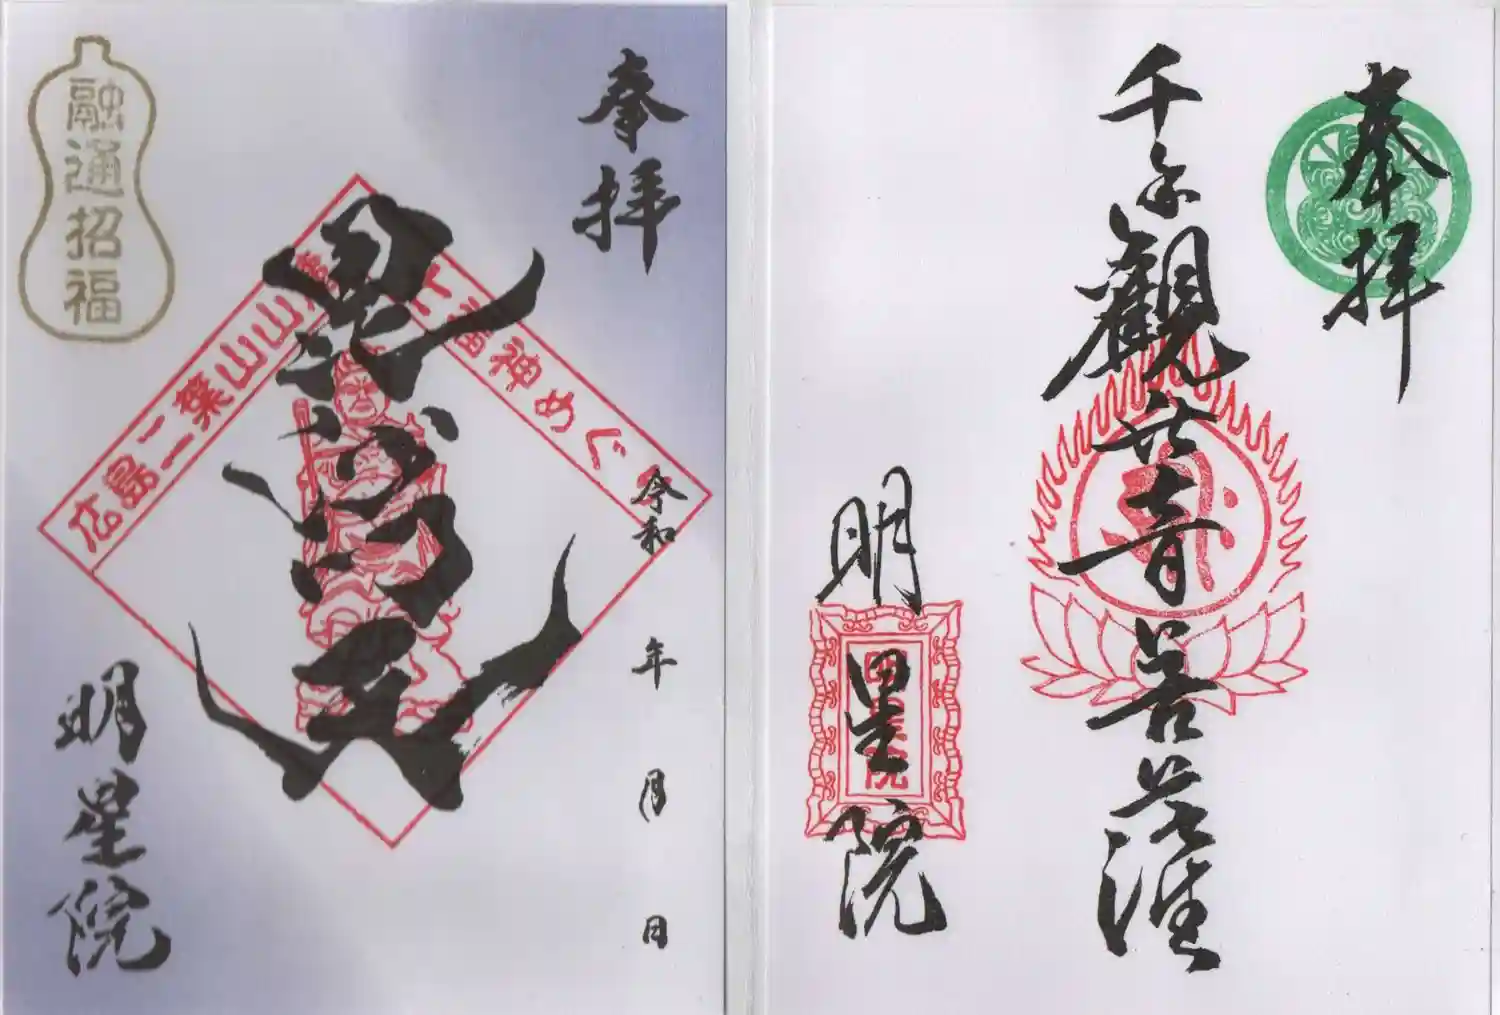 奉拝
千手觀世音菩薩
明星院
奉拝
令和 年 月 日
毘沙門天
広島二葉山山麓
七福神めぐり
融通招福
明星院